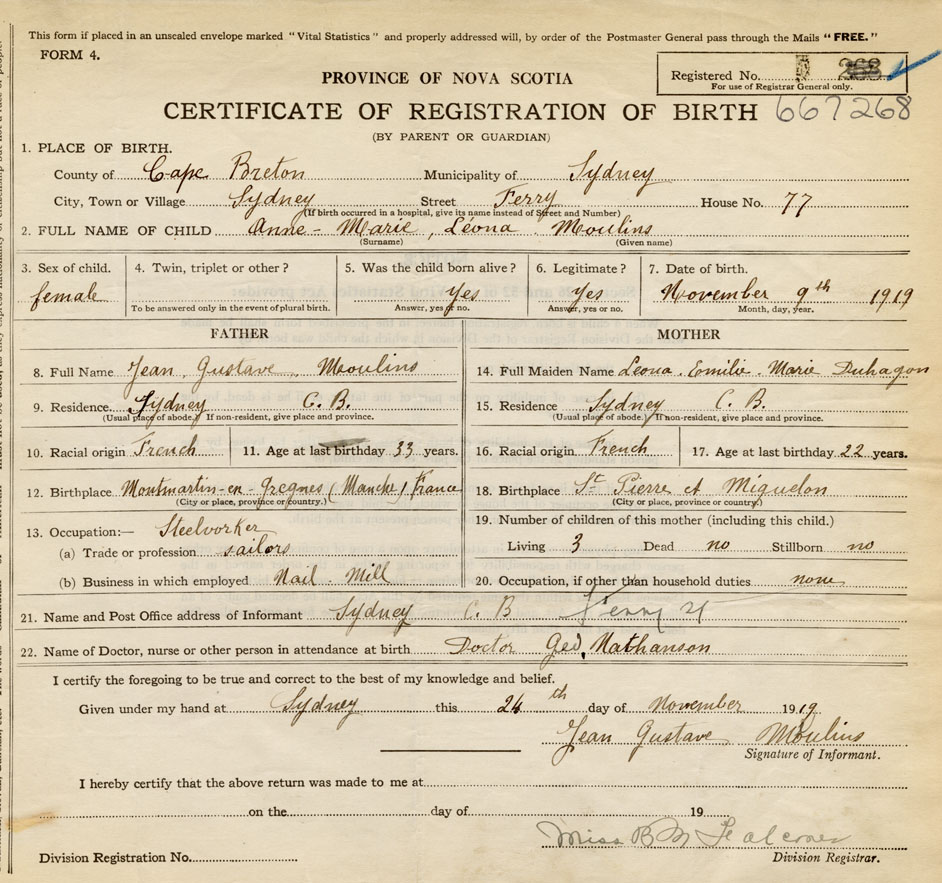 This form if placed in an unsealed envelope marked "Vital Statistics" and properly addressed will, by order of the Postmaster General pass through the Mails "FREE."
FORM 4.
PROVINCE OF NOVA SCOTIA
Registered No.
For use of Registrar General only.
CERTIFICATE OF REGISTRATION OF BIRTH 667268
(BY PARENT OR GUARDIAN)
1. PLACE OF BIRTH.
County of Cape Breton Municipality of Sydney
City, Town or Village Sydney Street Ferry House No. 77
(If birth occurred in a hospital, give its name instead of Street and Number)
2. FULL NAME OF CHILD Anne-Marie, Léona Moulins
(Surname) (Given name)
3. Sex of child. 4. Twin, triplet or other? 5. Was the child born alive? 6. Legitimate? 7. Date of birth.
female Yes Yes November 9th 1919
To be answered only in the event of plural birth. Answer, yes or no. Answer, yes or no. Month, day, year.
FATHER MOTHER
8. Full Name Jean Gustave Moulins
14. Full Maiden Name Leona Emilie Marie Duhagon
9. Residence. Sydney C. B.
(Usual place of abode.) If non-resident, give place and province.
15. Residence Sydney C. B.
(Usual place of abode.) If non-resident, give place and province.
10. Racial origin French 11. Age at last birthday 33 years.
16. Racial origin French 17. Age at last birthday 22 years.
12. Birthplace Montmartin-en- (Manche) France
(City or place, province or country.)
18. Birthplace St Pierre et Miquelon
(City or place, province or country.)
13. Occupation:— Steelvorker
(a) Trade or profession sailors
(b) Business in which employed Nail Mill
19. Number of children of this mother (including this child.)
Living 3 Dead no Stillborn no
20. Occupation, if other than household duties none
21. Name and Post Office address of Informant Sydney C. B
22. Name of Doctor, nurse or other person in attendance at birth Doctor Geo. Nathanson
I certify the foregoing to be true and correct to the best of my knowledge and belief.
Given under my hand at Sydney this 24th day of November 1919
Jean Gustave Moulins
Signature of Informant.
I hereby certify that the above return was made to me at
on the day of 19
Miss B M Falconer
Division Registration No. Division Registrar.